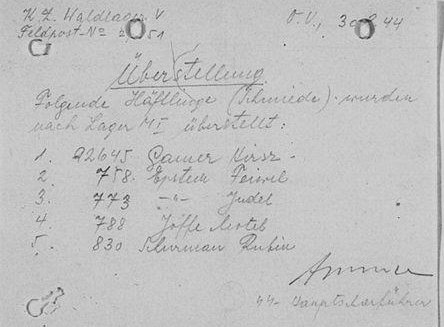 K Z. Waldlager V O.U., 30. 44
Feldpost-No 51
Überstellung
Folgende Häftlinge (Schmiede) wurden
nach Lager M I überstellt:
1. 22645 Hirsz
2 758. Epstein Feiwel
3. 773 -"- Judel
4 788 Joffe
5. 830 Schurman Rubin
44-Hauptscharführer